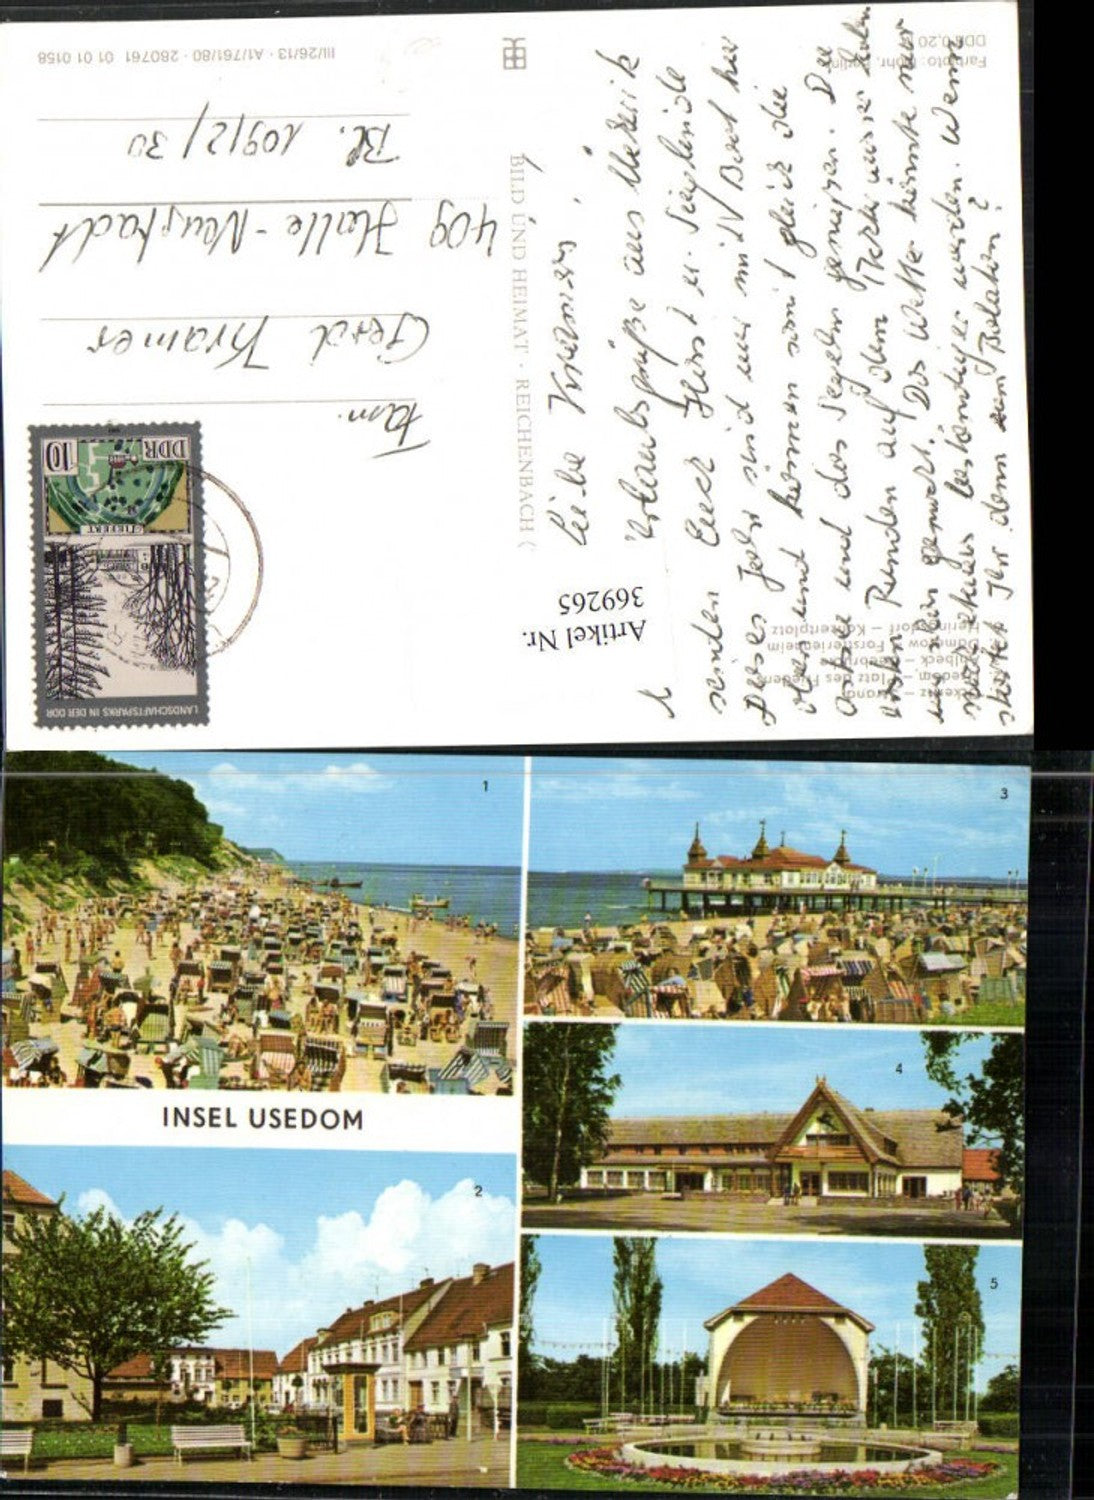 Liebe Kramers!
Urlaubsgrüße aus Ückeritz
senden Euch Horst u. Sieglinde
Dieses Jahr sind wir mit Boot hier
oben und können somit gleich die
Ostsee und das Segeln genießen. Die
ersten Runden auf dem haben
wir schon gemacht. Das Wetter könnte nur
etwas beständiger werden. Wann
startet Ihr denn zum Balaton?
Fam.
Gerd Kramer
409 Halle-Neustadt
Bl. 109/2/30
BILD UND HEIMAT · REICHENBACH (
III/26/13 · A1/761/80 · 280761 01 01 0158
DDR 0,20
Farbfoto:
Ückeritz – Strand
Usedom – Platz des Friedens
Ahlbeck – Seebrücke
Damerow – Forstferienheim
Heringsdorf – Konzertplatz
Artikel Nr.
369265
LANDSCHAFTSPARKS IN DER DDR
TIEFURT
DDR
10
1
3
INSEL USEDOM
4
2
5